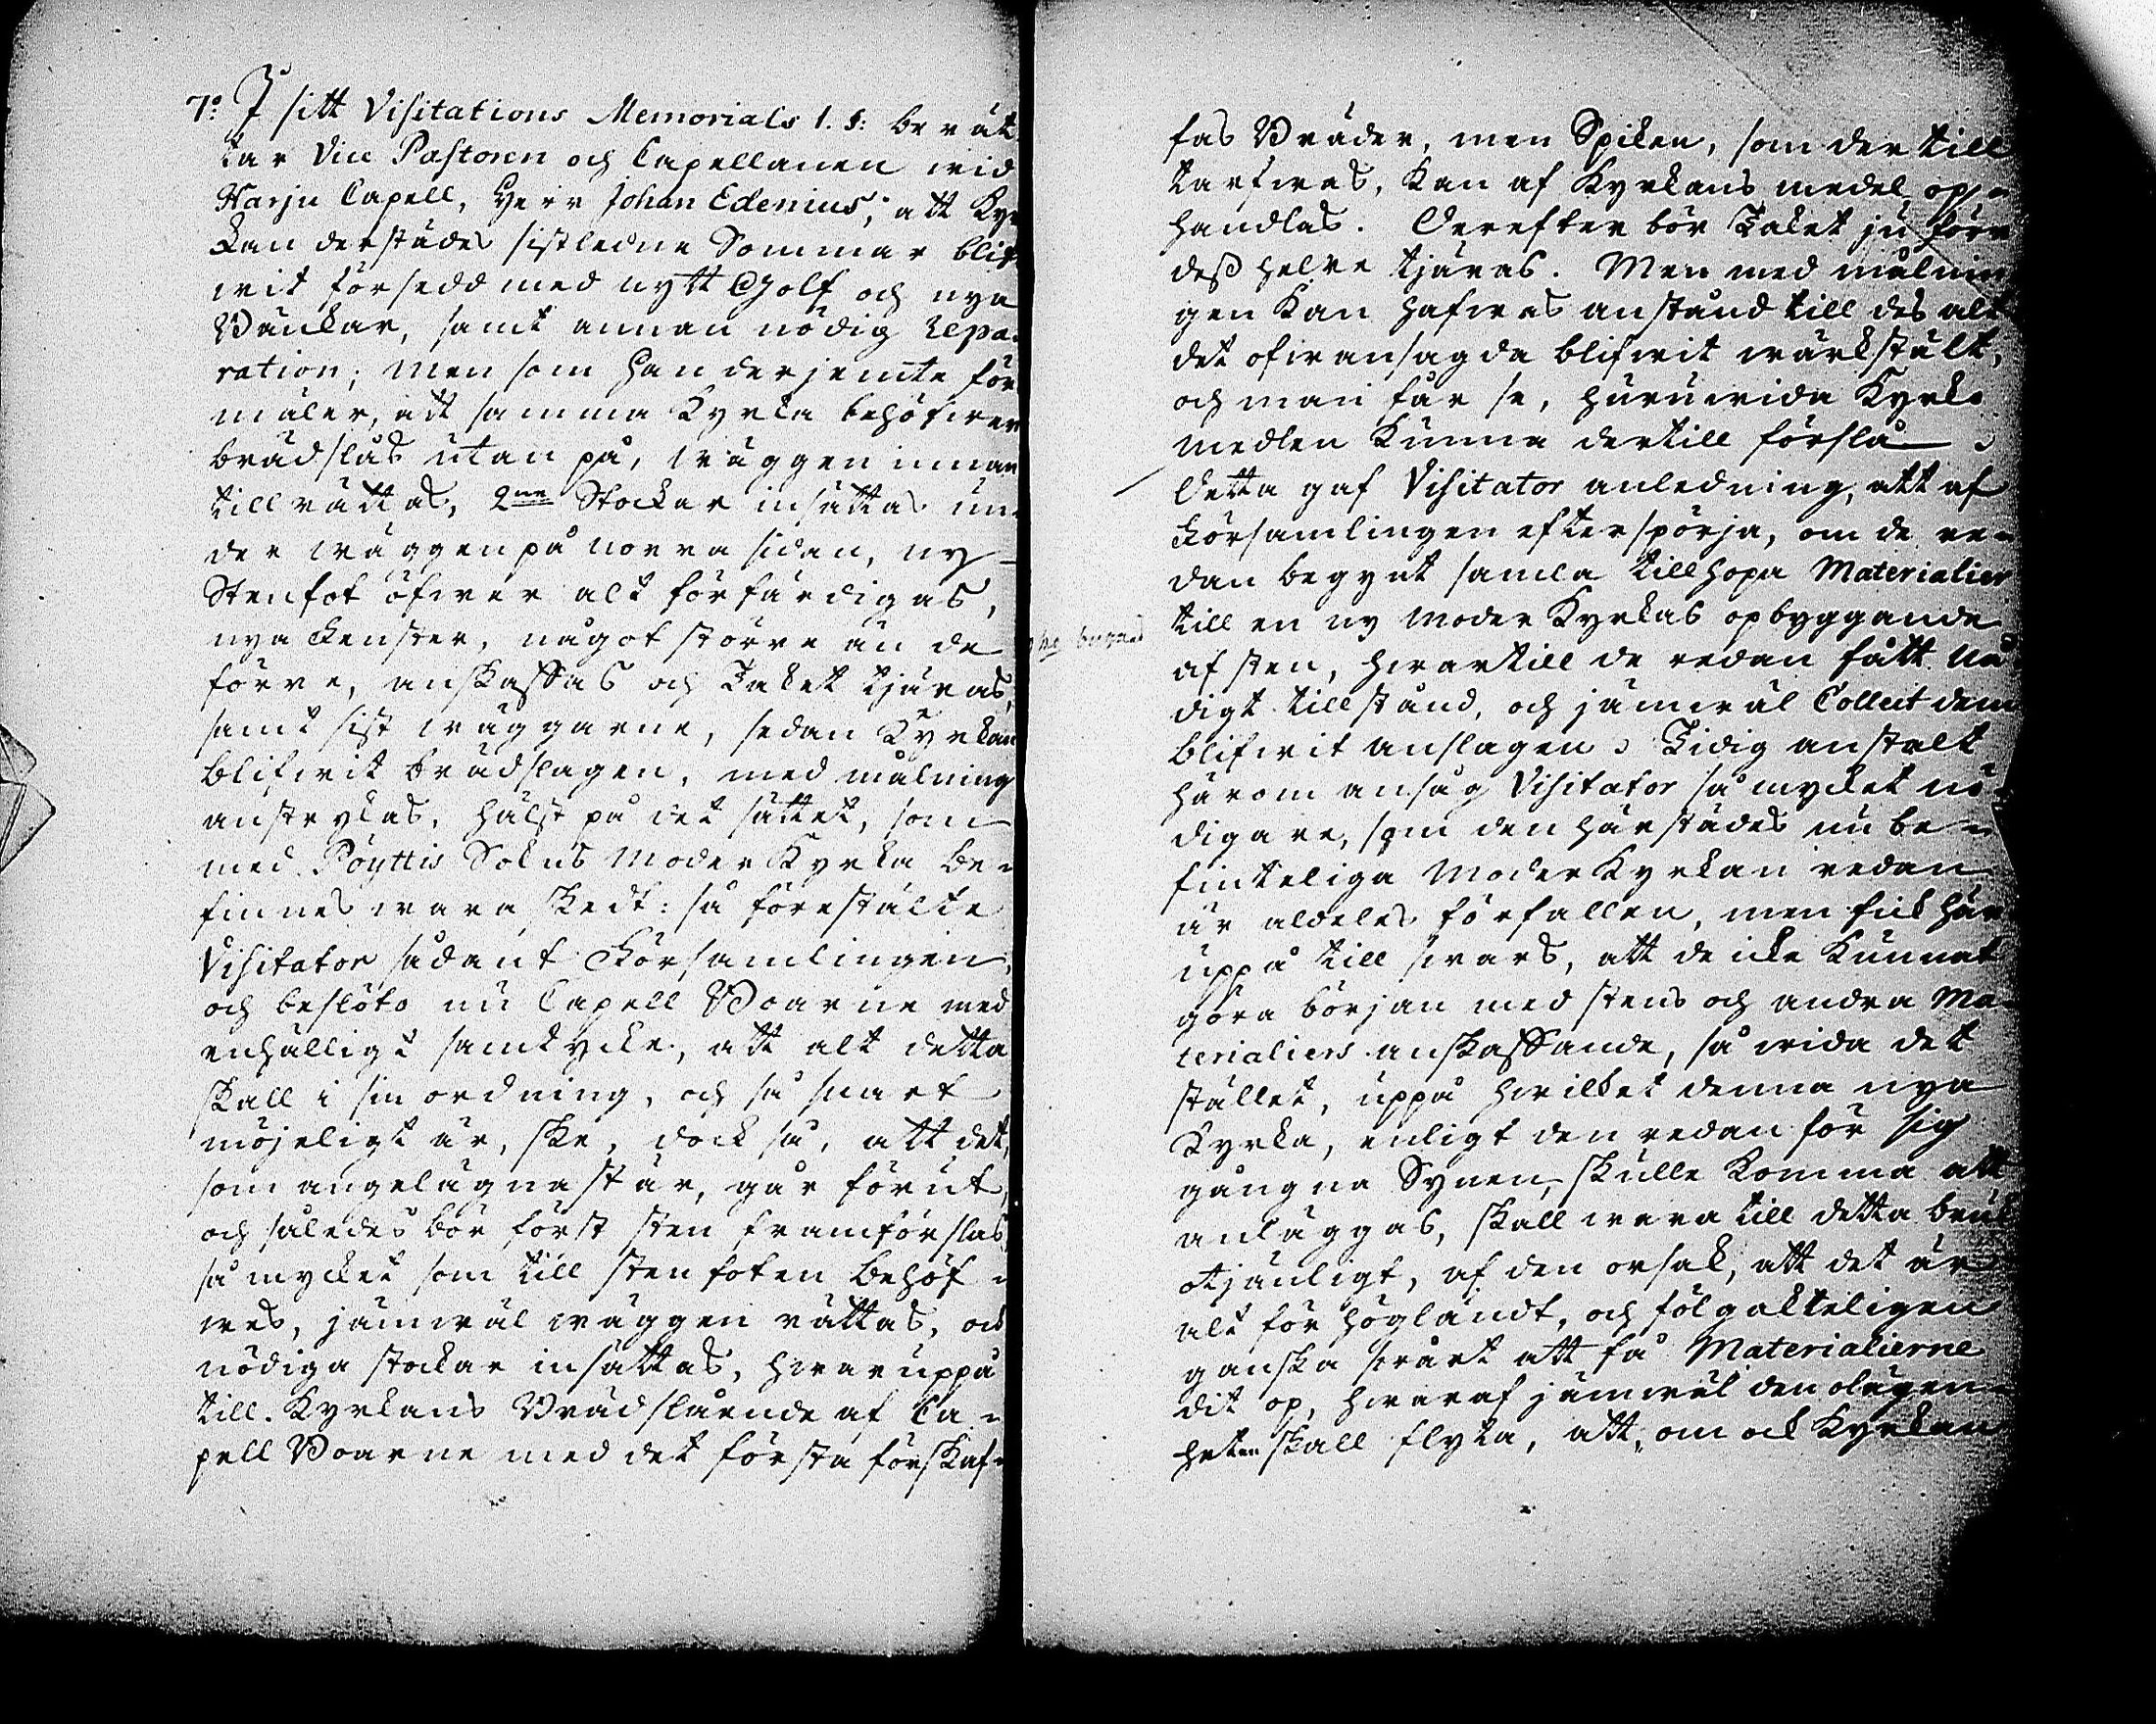 7:o I sitt Visitations Memorials 1. §: berät
tar Vice Pastoren och Capellanen wid
Harju Capell, Herr Johan Edenius, att Kyr
kan derstädes sistledne Sommar blif
wit försedd med nytt Golf och nya
Bänkar, samt annan nödig repa-
ration; men som han derjemte för
mäler, att samma Kyrka behöfwer
brädslås utan på, wäggen innan
till rättas, 2ne Stockar insättas un-
der wäggen på norra sidan, ny
Stenfot öfwer alt förfärdigas,
nya Fenster, något större än de
förre, anskaffas och Taket tjäras,
samt sist wäggarne, sedan Kyrkan
blifwit brädslagen, med målning
anstrykas, hälst på det sättet, som
med Pöyttis Sokns Moder Kyrka be-
finnes wara skedt: så förestälte
Visitator sådant Församlingen,
och beslöto nu Capell Boarne med
enhälligt samtycke, att alt detta
skall i sin ordning, och så snart
möjeligt är, ske, dock så, att det,
som angelägnast är, går förut,
och således bör först sten framförslas
så mycket som till stenfoten behöf-
wes, jämwäl wäggen rättas, och
nödiga stockar insättas, hwaruppå
till Kyrkans Brädslående af Ca-
pell Boarne med det första förskaf-
fas Bräder, men Spiken, som der till
tarfwas, kan af Kyrkans medel op-
handlas. Derefter bör Taket ju förr
dess helre tjäras. Men med målnin
gen kan hafwas anstånd till des alt
det ofwansagda blifwit wärkstält,
och man får se, huruwida Kyrko
medlen kunna dertill förslå
Detta gaf Visitator anledning, att af
Församlingen efterspörja, om de re-
dan begynt samla tillhopa Materialier
till en ny moder Kyrkas opbyggande
af sten, hwartill de redan fått nå
digt tillstånd, och jämwäl Collect dem
blifwit anslagen. Tidig anstalt
härom ansåg Visitator så mycket nö-
digare, som den härstädes nu be-
finteliga Moder Kyrkan redan
är aldeles förfallen, men fick här
uppå till swars, att de icke kunnat
göra början med stens och andra Ma-
terialiers anskaffande, så wida det
stället, uppå hwilket denna nya
Kyrka, enligt den redan för sig
gångna Synen, skulle komma att
anläggas, skall wara till detta bruk
otjänligt, af den orsak, att det är
alt för högländt, och följakteligen
ganska swårt att få Materialierne
dit op, hwaraf jämwäl den olägen-
heten skall flyta, att, om ock Kyrkan